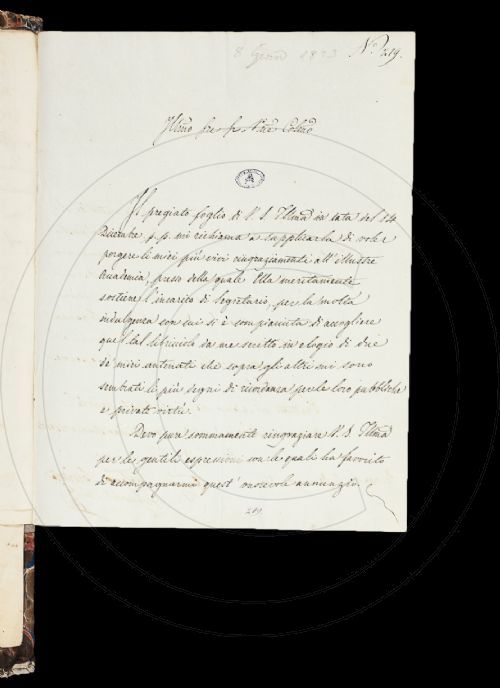 8 Genn 1823
N.º 219.
Illmo Sre Sr Pne Colmo
Il pregiato foglio di V. S. Illma in data del 14
Dicembre p. p. mi richiama a supplicarla di voler
porgere li miei più vivi ringraziamenti all'illustre
Accademia, presso della quale Ella meritamente
sostiene l'incarico di Segretario, per la molta
indulgenza con cui si è compiaciuta di accogliere
quel tal libriciolo da me scritto in elogio di due
de' miei antenati che sopra gli altri mi sono
sembrati li più degni di ricordanza per le loro pubbliche
e private virtù.
Devo pure sommamente ringraziare V. S. Illma
per le gentili espressioni con le quali ha favorito
di accompagnarmi quest'onorevole annunzio.
219.